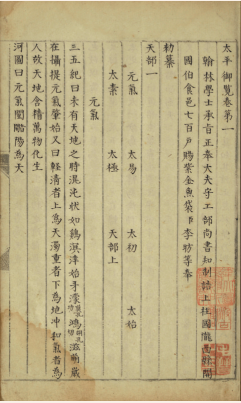 太平御覽卷第一
翰林學士承旨正奉大夫守工部尚書知制誥上柱國隴西縣開
國伯食邑七百戶賜紫金魚袋臣李昉等奉
勅纂
天部一
元氣 太易 太初 太始
太素 太極 天部上
元氣
三五歷紀曰未有天地之時混沌狀如雞子溟涬始牙濛鴻滋萌歲
在攝提元氣肇始又曰輕清者上為天濁重者下為地冲和氣者為
人故天地含精萬物化生
河圖曰元氣闓陽為天